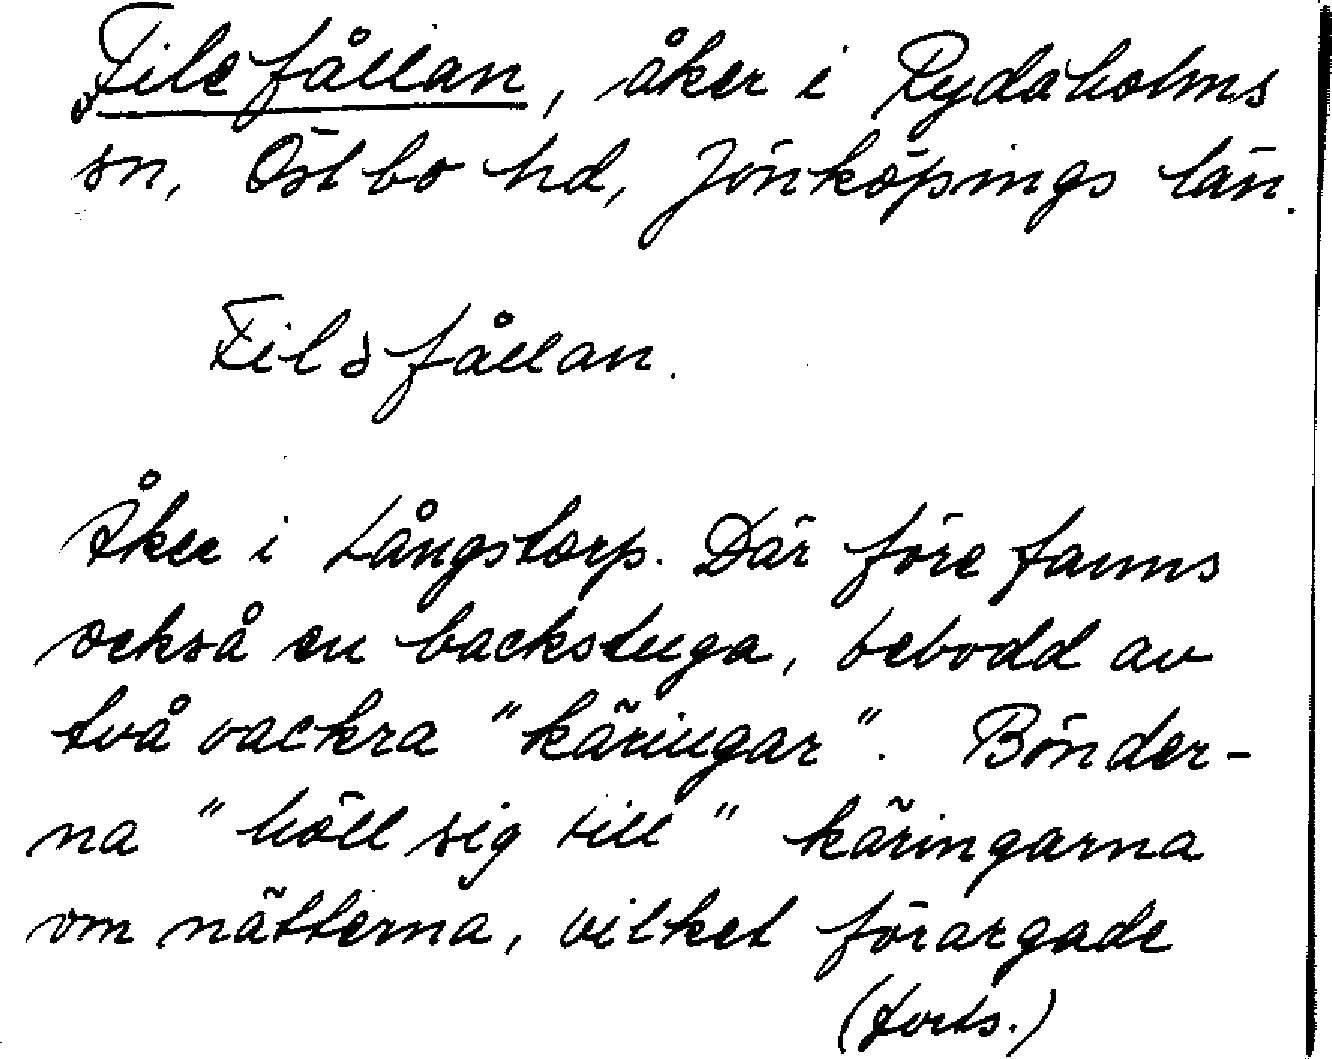 Filsfållan, åker i Rydaholms
sn, Östbo hd, Jönköpings län.
Filsfållan.
Åker i Långstorp. Där före fanns
också en backstuga, bebodd av
två vackra "käringar". Bönder-
na "höll sig till" käringarna
om nätterna, vilket förargade
(forts.)